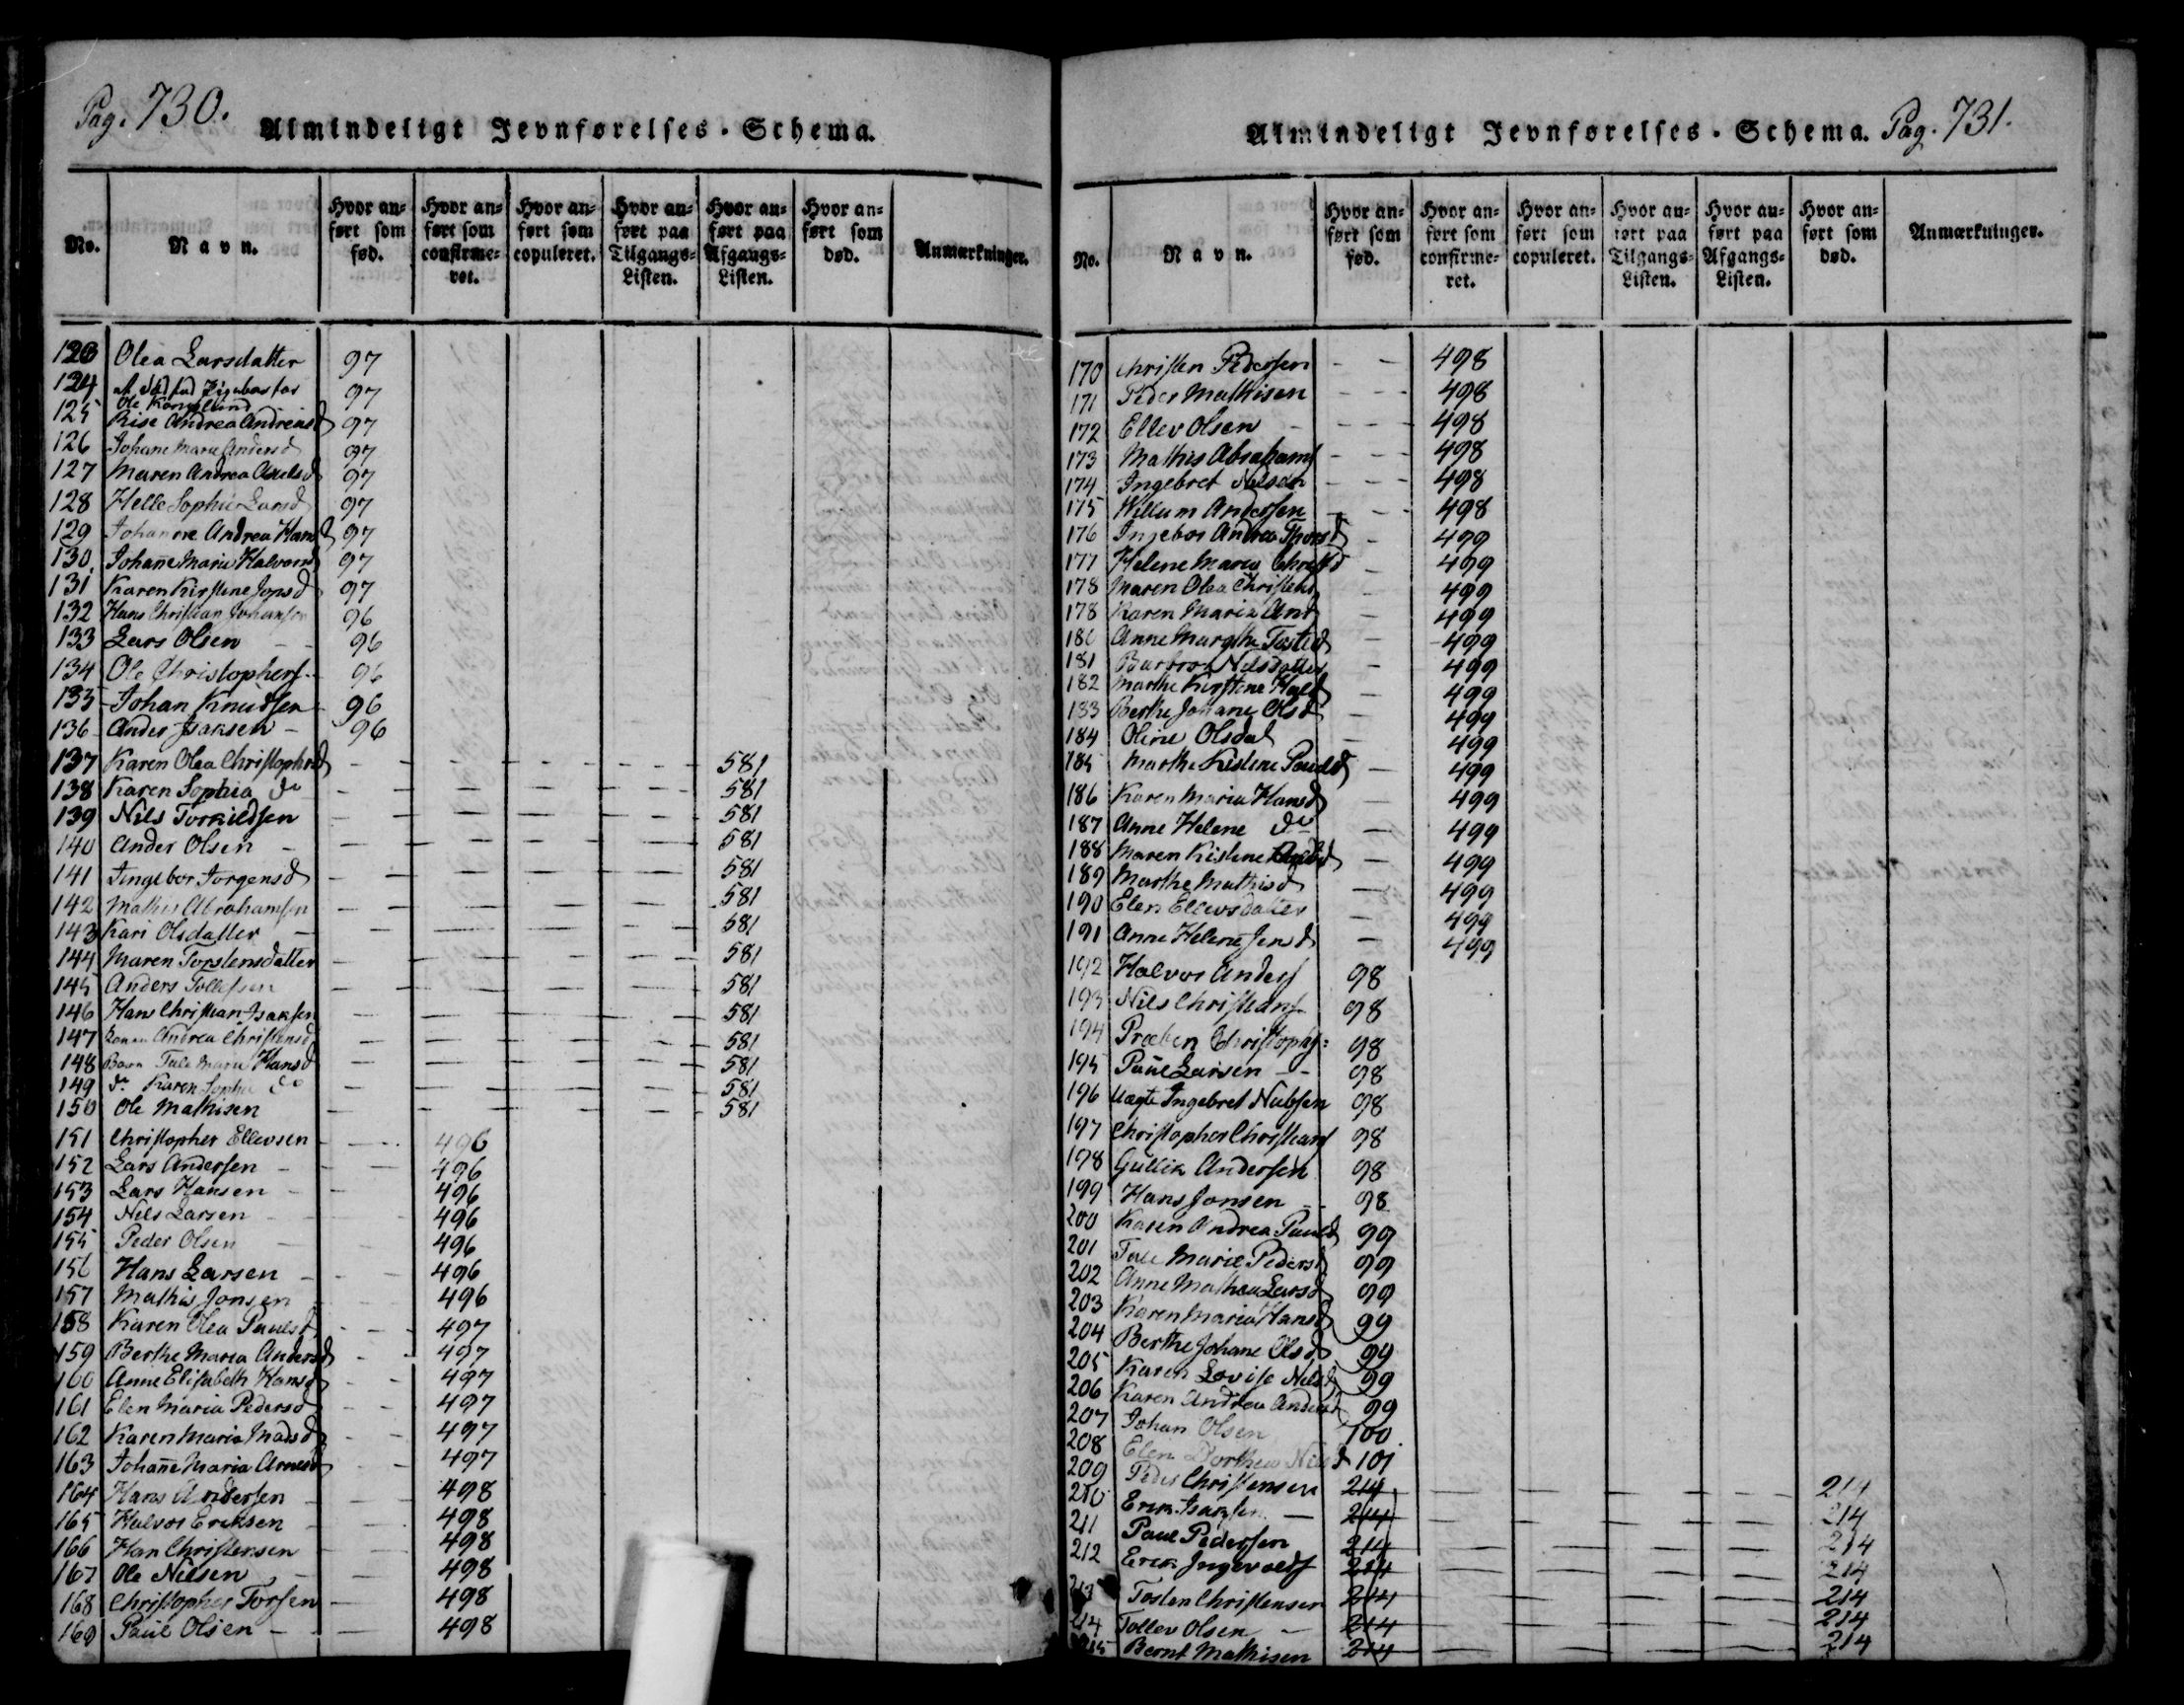 Pag. 730.
Almindeligt Jevnførelses-Schema.
No. Navn. Hvor anført som fød. Hvor anført som confirmeret. Hvor anført som copuleret. Hvor anført paa Tilgangs-Listen. Hvor anført paa Afgangs-Listen. Hvor anført som død. Anmærkninger.
123 Olea Larsdatter 97
124 97
125 Rise Andrea Andreasd 97
126 Johane Marie Andersd 97
127 Maren Andrea Axelsd 97
128 Helle Sophie Larsd 97
129 Johanne Andrea Hansd 97
130. Johañe Maria Halvorsd 97
131 Karen Kirstine Jonsd 97
132 Hans Christian Johansen 96
133 Lars Olsen - - 96
134 Ole Christophers - 96
135 Johan Knudsen 96
136 Ander Isaksen - 96
137 Karen Olea Christophersd - - - - - 581
138 Karen Sophia do - - - - - 581
139 Nils Torkildsen - - - - - 581
140 Ander Olsen - - - - - - 581
141 Ingebor Jorgensd - - - - - 581
142 Mathis Abrahamsen - - - - - 581
143 Kari Olsdatter - - - - - - 581
144 Maren Torstensdatter - - - - - 581
145 Anders Tollefsen - - - - - 581
146 Hans Christian Isaksen - - - - - 581
147 Andrea Christensd - - - - - 581
148 Barn Tale Maria Hansd - - - - - 581
149 do Karen Sophie do - - - - - 581
150 Ole Mathisen - - - - - 581
151 Christopher Ellevsen - - 496
152 Lars Andersen - - 496
153 Lars Hansen - - 496
154 Nils Larsen - - 496
155 Peder Olsen - 496
156 Hans Larsen - - 496
157 Mathis Jonsen 496
158 Karen Olea Paulsd - - 497
159 Berthe Maria Andersd - - 497
160 Anne Elisabeth Hansd - - 497
161 Elen Maria Pedersd - - 497
162 Karen Maria Madsd - - 497
163 Johañe Maria Arnesd - - 497
164 Hans Andersen - - 498
165 Halvor Eriksen - - 498
166 Han Christensen - - 498
167 Ole Nilsen - - 498
168 Christopher Torsen - 498
169 Paul Olsen - - - 498
Almindeligt Jevnførelses-Schema. Pag. 731.
No. Navn. Hvor anført som fød. Hvor anført som confirmeret. Hvor anført som copuleret. Hvor anført paa Tilgangs-Listen. Hvor anført paa Afgangs-Listen. Hvor anført som død. Anmærkninger.
170 Christen Pedersen - - 498
171 Peder Mathisen - - - 498
172 Ellev Olsen - - - - 498
173 Mathis Abrahams - - - 498
174 Ingebret Nilsen - - - 498
175 Willum Andersen - - - 498
176 Ingebor Andrea Thorsd - 499
177 Helene Maria Christsd - 499
178 Maren Olea Christens - 499
178 Karen Maria And - 499
180 Anne Margthe Tosted - 499
181 Barbroe Nilsdatter - 499
182 Marthe Kirstine Hals - 499
183 Berthe Johane Olsd - 499
184 Oline Olsdat - 499
185 Marthe Kistine Paulsd - 499
186 Karen Maria Hansd - 499
187 Anne Helene do - 499
188 Maren Kistine - 499
189 Marthe Mathisd - 499
190 Elen Ellevsdatter - 499
191 Anne Helene Jensd - 499
192 Halvor Anders 98
193 Nils Christians 98
194 Preben Christophs: 98
195 Paul Larsen - - 98
196 Uægte Ingebret Nielsen 98
197 Christopher Christians 98
198 Gullik Andersen 98
199 Hans Jonsen - - 98
200 Karen Andrea Paulsd 99
201 Tale Marie Pedersd 99
202 Anne Mathea Larsd 99
203 Karen Maria Hansd 99
204 Berthe Johane Olsd 99
205 Karen Lovise Nilsd 99
206 Karen Andrea Andersd 99
207 Johan Olsen 100.
208 Elen Dorthea Nilsd 101
209 Peder Christensen 214 - - - - 214
210 Erik Isaksen - 214 - - - - 214
211 Paul Pedersen 214 - - - - 214
212 Erik Ingevalds 214 - - - - 214
213 Tosten Christensen 214 - - - - 214
214 Tollev Olsen - 214 - - - - 214
215 Bernt Mathisen 214 - - - - 214